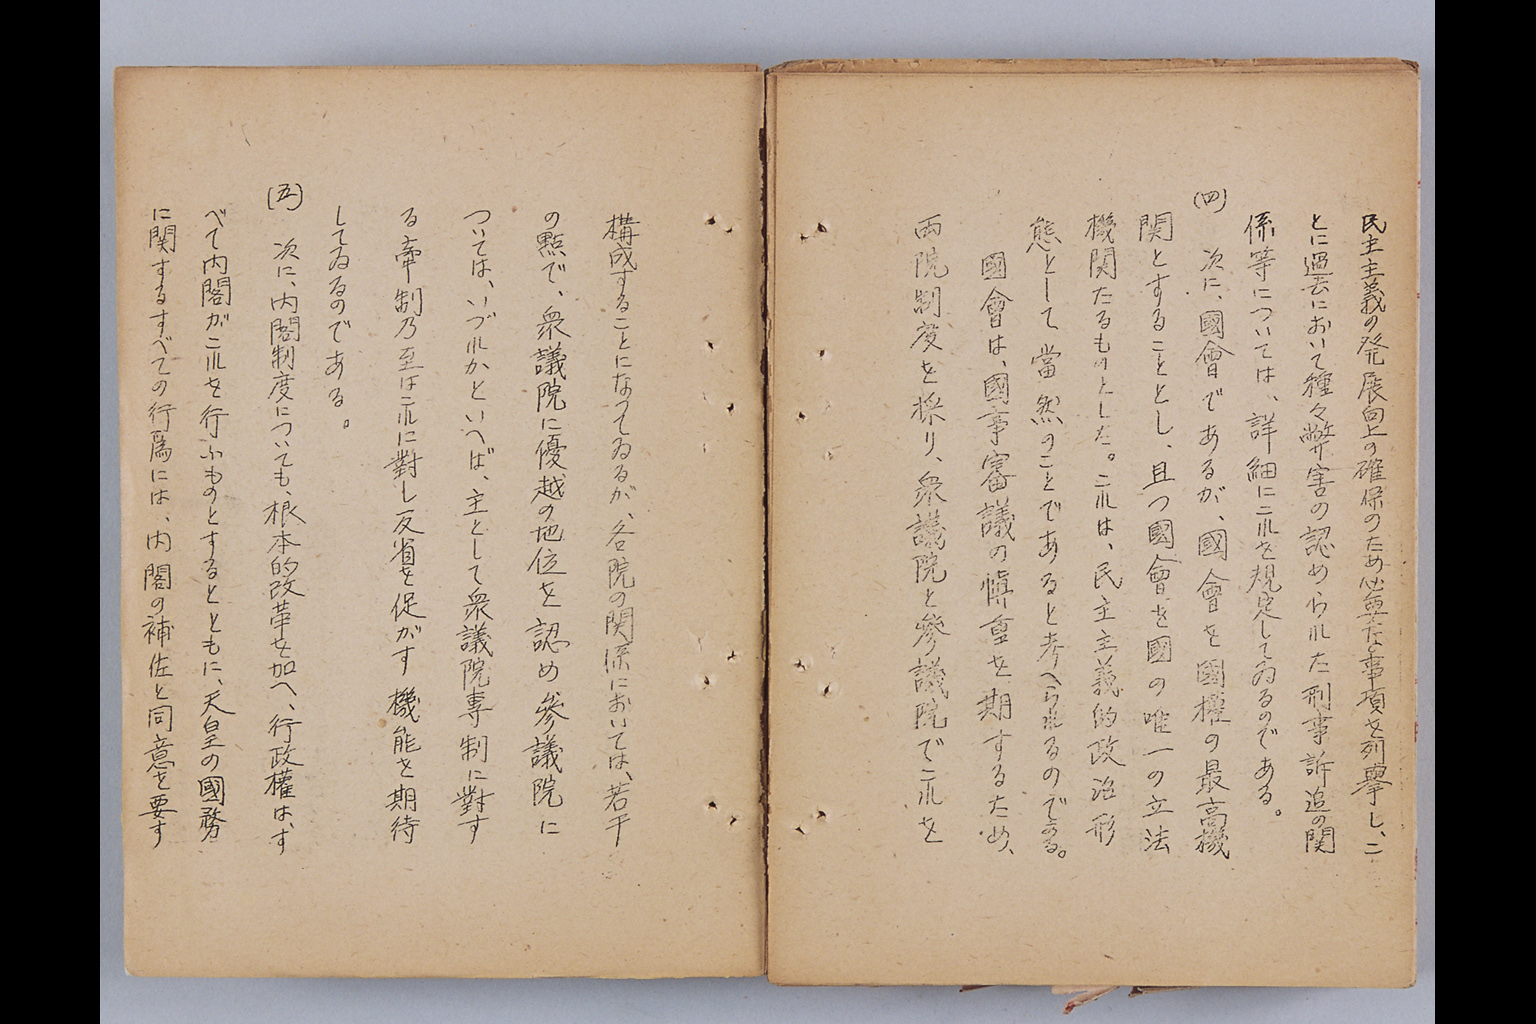 民主主義の発展向上の確保のため必要な事項を列擧し、こ
とに過去において種々弊害の認められた刑事訴追の関
係等については、詳細にこれを規定してゐるのである。
(四) 次に、國會であるが、國會を國權の最高機
関とすることとし、且つ國會を國の唯一の立法
機関たるものとした。これは、民主主義的政治形
態として當然のことであると考へられるのである。
國會は、國事審議の愼重を期するため、
両院制度を採り、衆議院と參議院でこれを
構成することになつてゐるが、各院の関係においては、若干
の點で、衆議院に優越の地位を認め參議院に
ついては、いづれかといへば、主として衆議院専制に對す
る牽制乃至はこれに對し反省を促がす機能を期待
してゐるのである。
(五) 次に、内閣制度についても、根本的改革を加へ、行政權は、す
べて内閣がこれを行ふものとするとともに、天皇の國務
に関するすべての行爲には、内閣の補佐と同意を要す